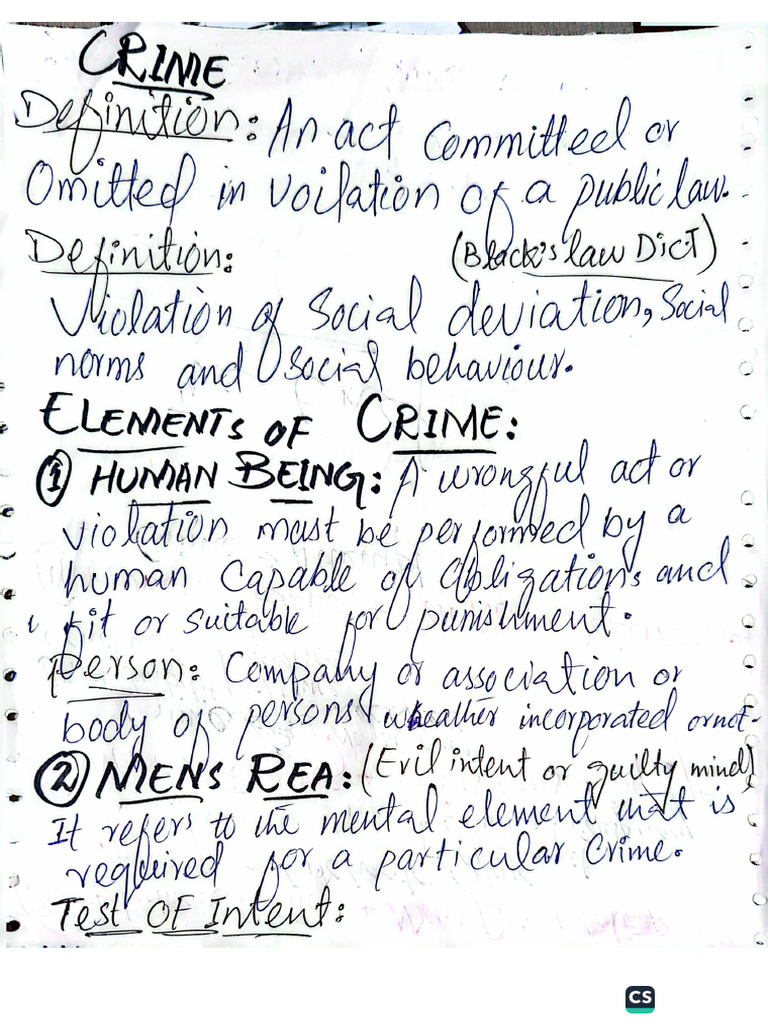 CRIME
Definition: An act Committed or
Omitted in Voilation of a public law.
Definition: (Black's law DicT)
Violation of Social deviation, Social
norms and social behaviour.
ELEMENTS OF CRIME:
① HUMAN BEING: A wrongful act or
violation must be performed by a
human Capable of Obligations and
fit or suitable for punishment.
Person: Company or association or
body of persons wheather incorporated or not.
② MENS REA: (Evil intent or guilty mind)
It refers to the mental element that is
required for a particular Crime.
Test OF Intent:
CS